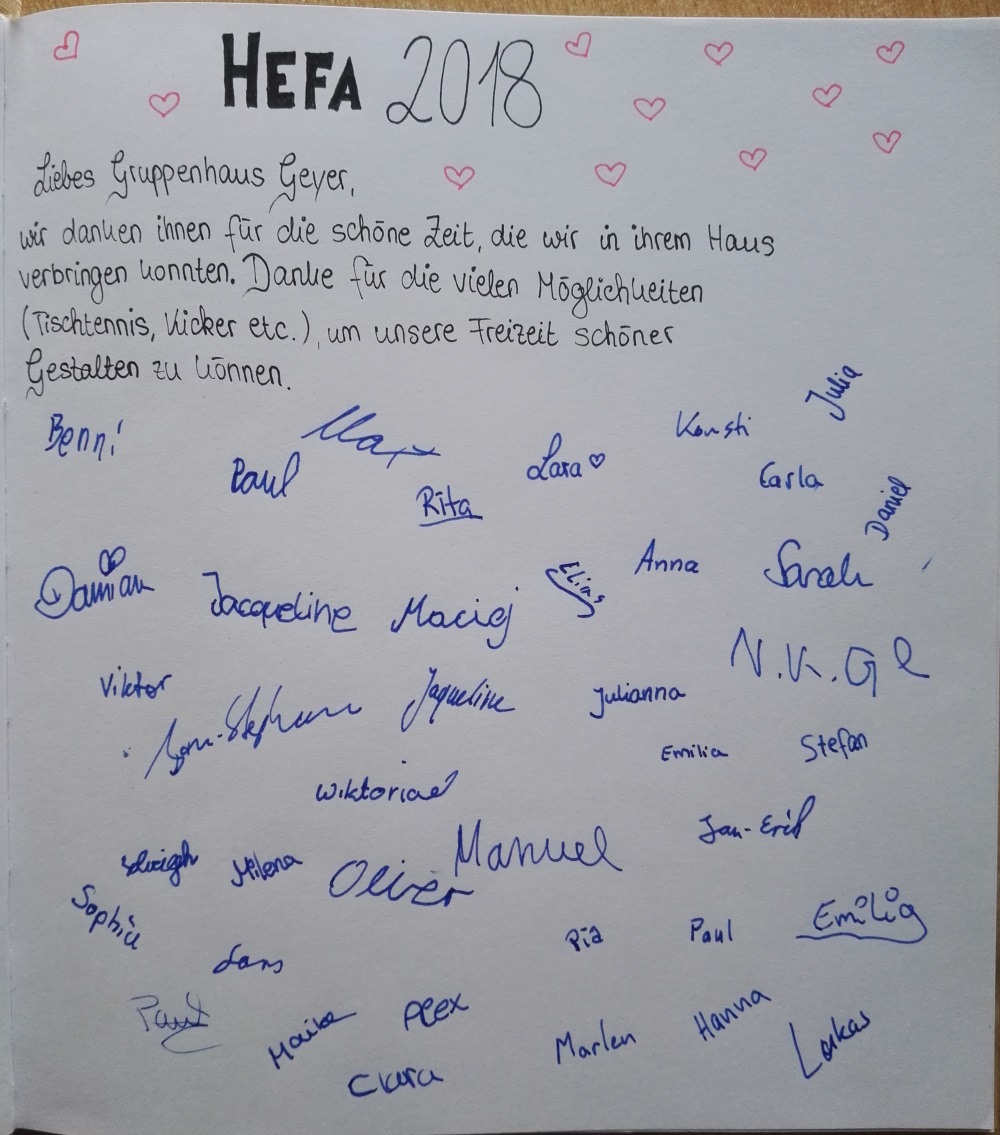 HEFA 2018
Liebes Gruppenhaus Geyer,
wir danken ihnen für die schöne Zeit, die wir in ihrem Haus
verbringen konnten. Danke für die vielen Möglichkeiten
(Tischtennis, Kicker etc.), um unsere Freizeit schöner
Gestalten zu können.
Julia
Benni Max Konsti
Paul Rita Lara Carla Daniel
Damian Jacqueline Maciej Elias Anna Sarah
Viktor Jaqueline Julianna N.K.
Emilia Stefan
Manuel Jan-Erik
Milena Oliver
Sophie Lars Pia Paul Emilia
Paul Maike Alex Marlen Hanna Lukas
Clara